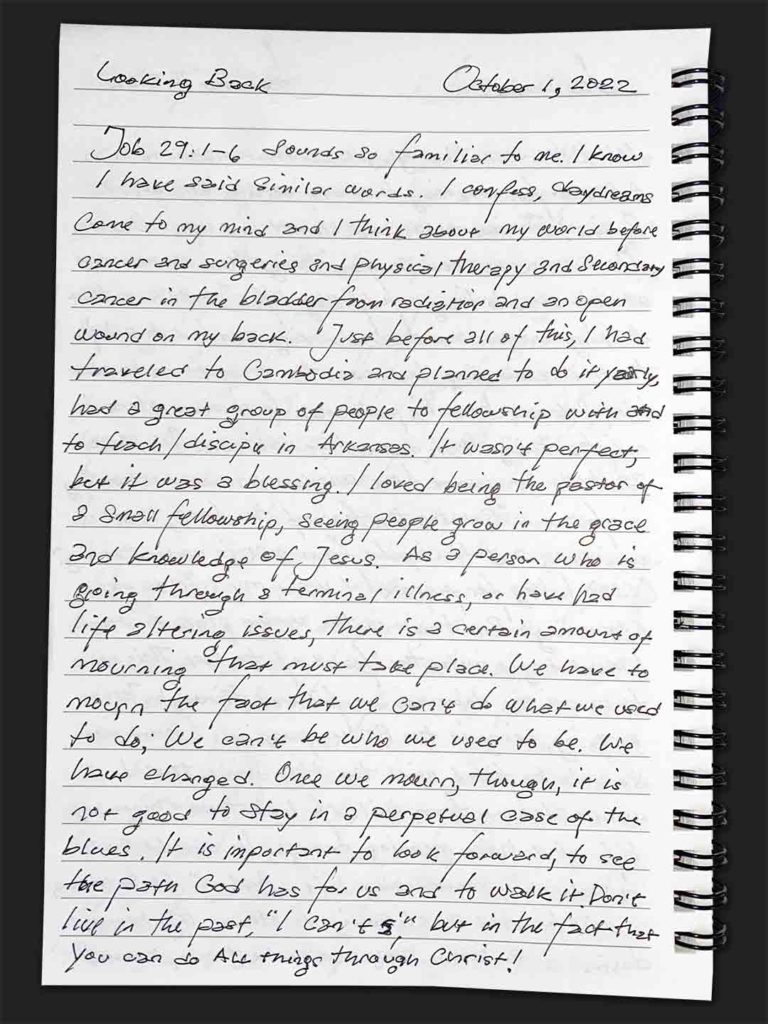 Looking Back October 1, 2022
Job 29:1-6 sounds so familiar to me. I know
I have said similar words. I confess, daydreams
come to my mind and I think about my world before
cancer and surgeries and physical therapy and Secondary
cancer in the bladder from radiation and an open
wound on my back. Just before all of this, I had
traveled to Cambodia and planned to do it yearly,
had a great group of people to fellowship with and
to teach/disciple in Arkansas. It wasn't perfect,
but it was a blessing. I loved being the pastor of
a small fellowship, seeing people grow in the grace
and knowledge of Jesus. As a person who is
going through a terminal illness, or have had
life altering issues, there is a certain amount of
mourning that must take place. We have to
mourn the fact that we can't do what we used
to do; We can't be who we used to be. We
have changed. Once we mourn, though, it is
not good to stay in a perpetual case of the
blues. It is important to look forward, to see
the path God has for us and to walk it. Don't
live in the past, "I can't s'," but in the fact that
you can do All things through Christ!